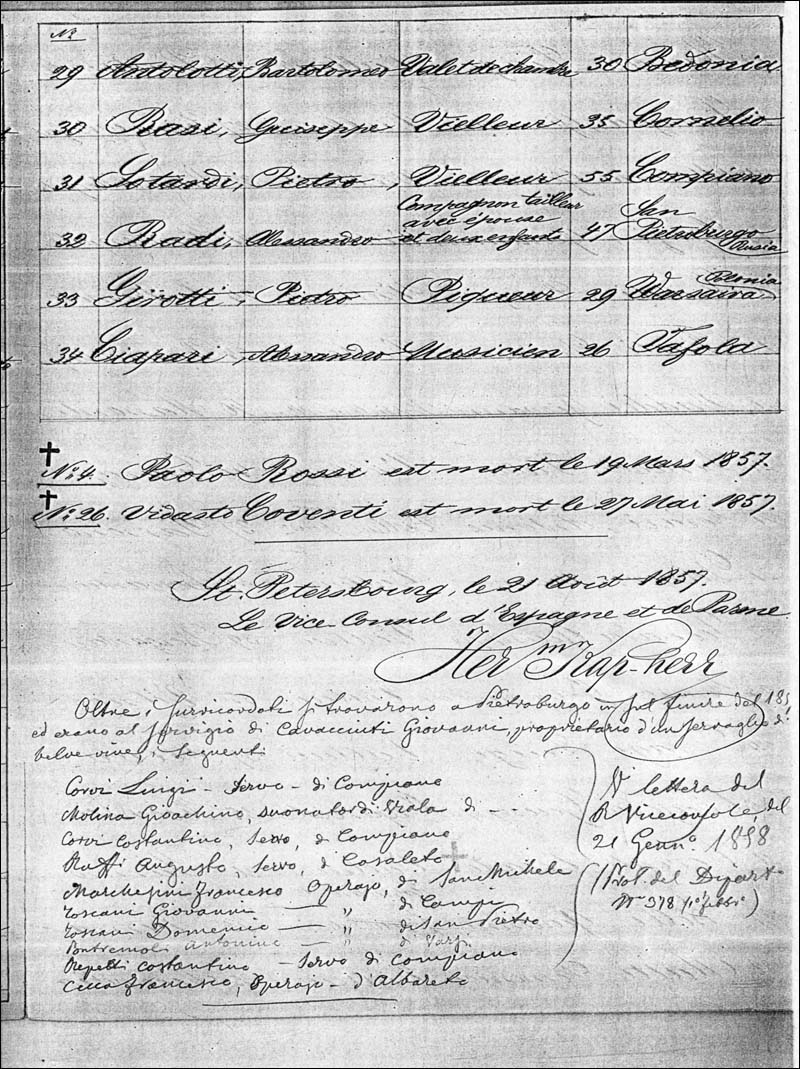 No.
29 Antolotti, Bartolomeo Valet de chambre 30 Bedonia
30 Rasi, Guiseppe Vielleur 35 Cornelio
31 Sotardi, Pietro, Vielleur 55 Compiano
32 Radi, Alessandro Compagnon tailleur avec épouse et deux enfants 47 San Pietroburgo Russia
33 Girotti, Pietro Piqueur 29 Warsavia Polonia
34 Ciapari, Alessandro Musicien 26 Tafola
No. 4. Paolo Rossi est mort le 19 Mars 1857.
No. 26. Vidasto Coventi est mort le 27 Mai 1857.
St. Petersbourg, le 21 Août 1857.
Le Vice-Consul d'Espagne et de Parme
Her mn Kap-herr
Oltre i surricordati si trovarono a Pietroburgo sul finire del
ed erano al servigio di Cavacciuti Giovanni, proprietario d'un serraglio di
belve vive, i seguenti
Corvi Luigi - Servo - di Compiano
Molina Gioachino, suonator di Viola di - - -
Corvi Costantino, Servo, di Compiano
Raffi Augusto, Servo, di Casaleto
Marchesini Francesco Operajo, di San Michele
Toscani Giovanni — " di Campi
Toscani Domenico — " di San Pietro
Antonino — "
Repetti Costantino - Servo di Compiano
Francesco, Operajo - d'Albareto
V lettera del
R Viceconsole, del
21 Genno. 1858
(Prot. del Dipart.
No 378